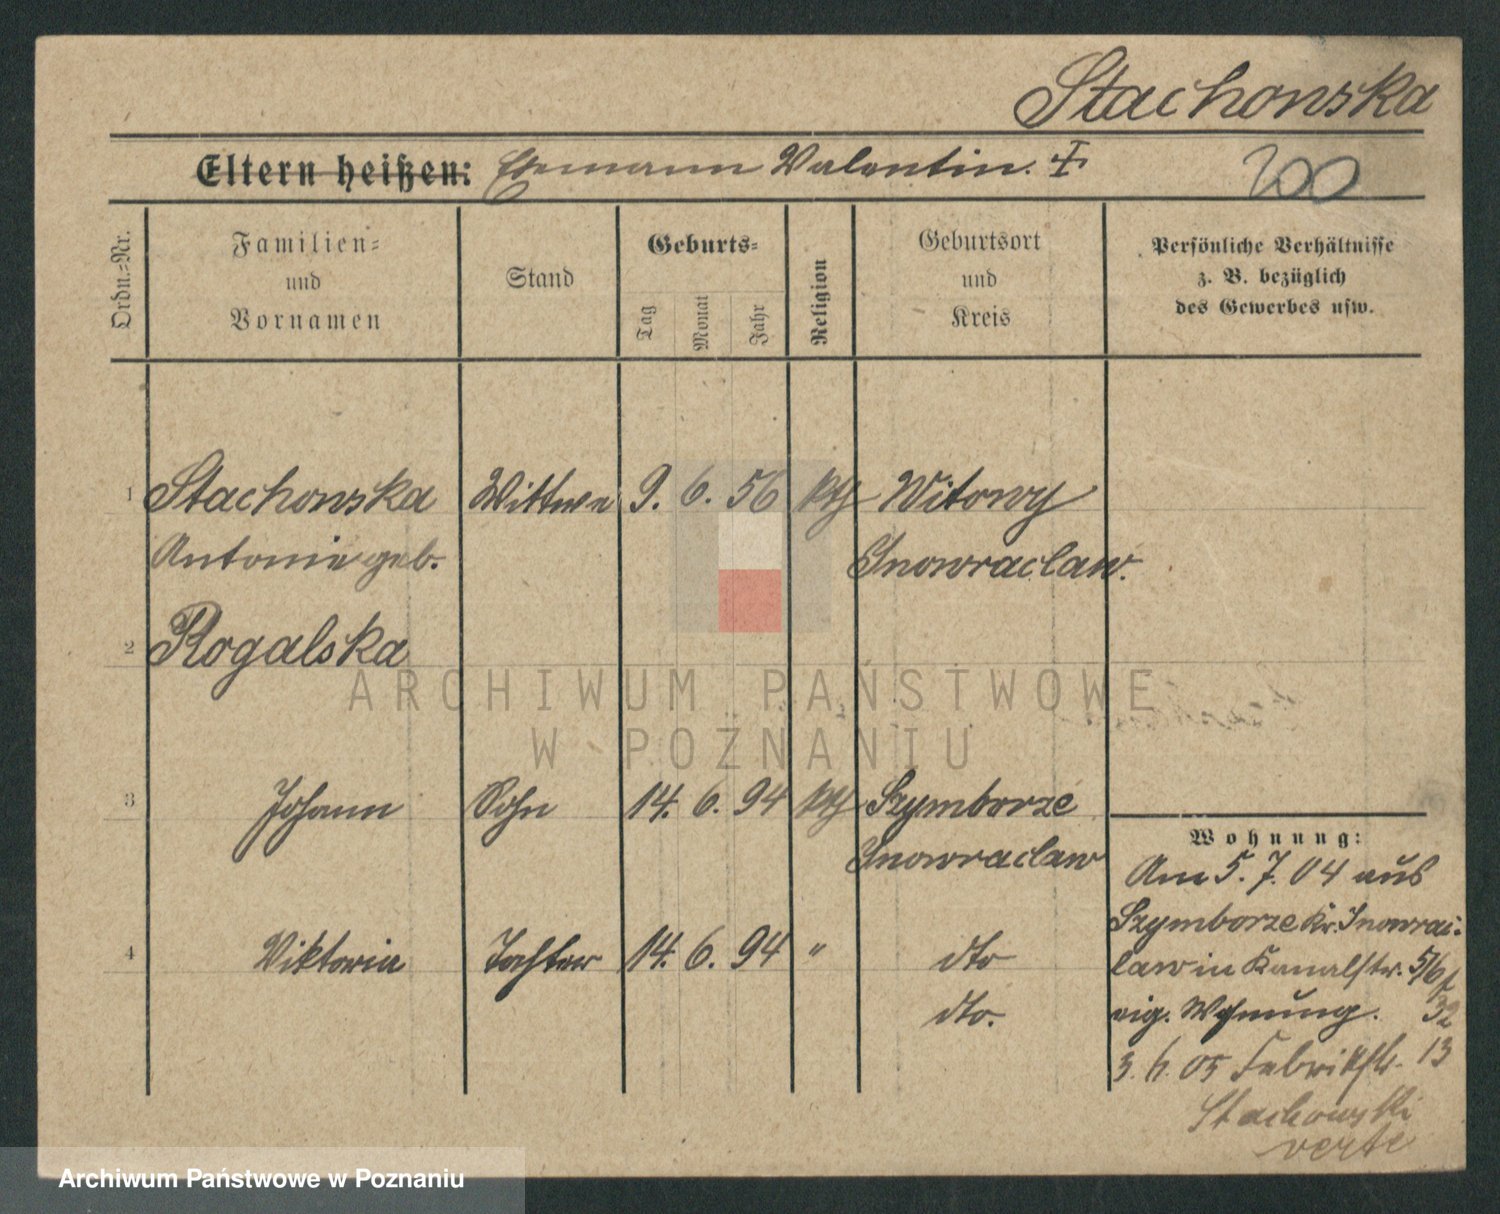 Stachonska
Eltern heißen: Ehemann Valentin. †
200
Ordn.=Nr.
Familien=
und
Vornamen
Stand
Geburts=
Tag
Monat
Jahr
Religion
Geburtsort
und
Kreis
Persönliche Verhältnisse
z. B. bezüglich
des Gewerbes usw.
1 Stachonska Wittwe 9. 6. 56 kth Witowy
Antonie geb. Inowraclaw.
2 Rogalska
3 Johann Sohn 14. 6. 94 kth Szymborze
Inowraclaw
4 Viktoria Tochter 14. 6. 94 " dto
dto.
Wohnung:
Am 5. 7. 04 aus
Szymborze Kr. Inowrac-
law in Kanalstr. 5/6
eig. Wohnung. 32
3. 6. 05 Fabrikstr. 13
Stachowski
verte
ARCHIWUM PAŃSTWOWE
W POZNANIU
Archiwum Państwowe w Poznaniu